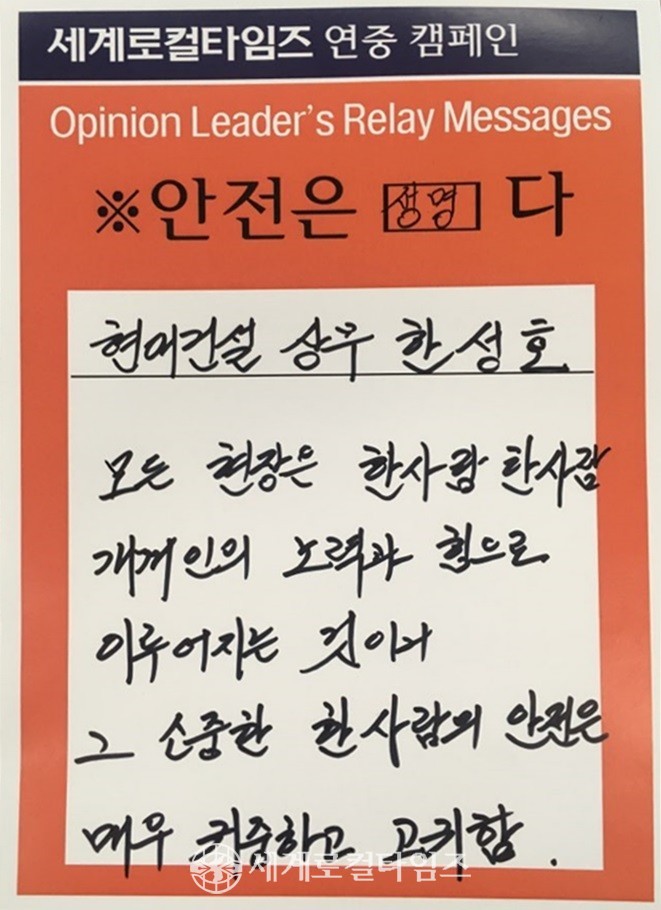 세계로컬타임즈 연중 캠페인
Opinion Leader's Relay Messages
※안전은 생명 다
상무 한성호
모든 현장은 한사람 한사람
개개인의 노력과 힘으로
이루어지는 것이며
그 소중한 한사람의 안전은
매우 귀중하고 고귀함.
세계로컬타임즈